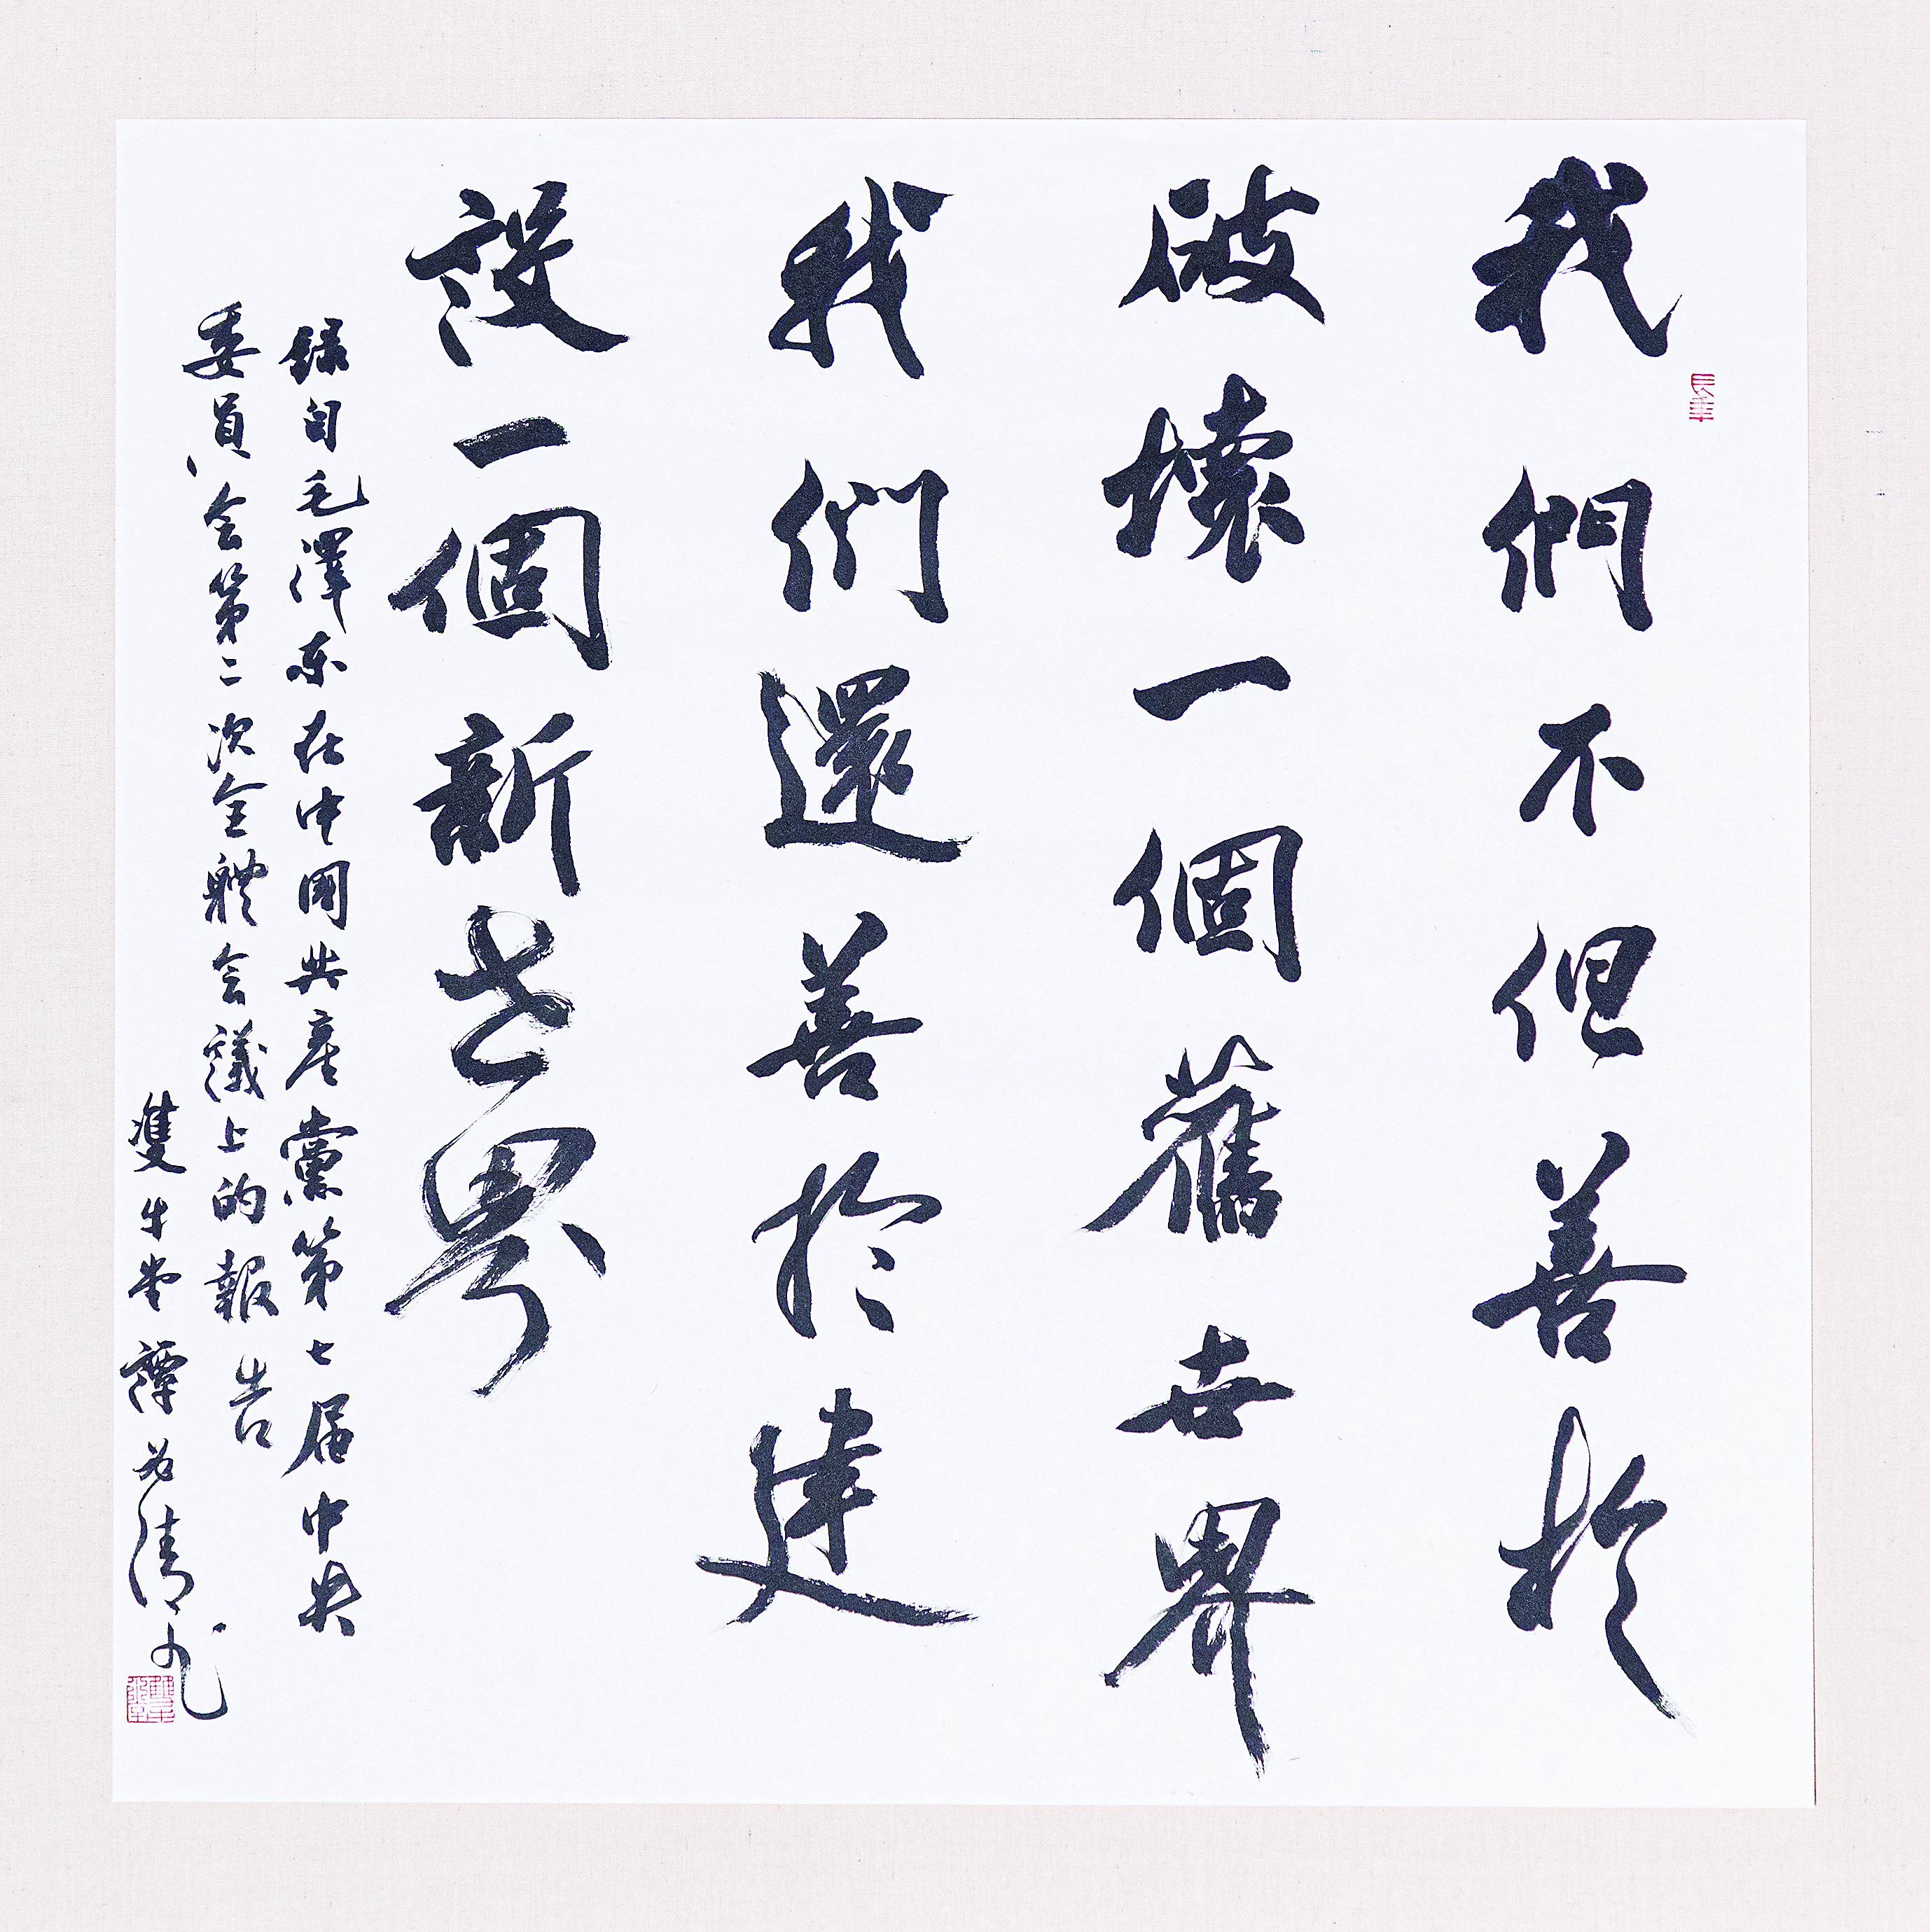 我們不但善於
破壞一個舊世界
我們還善於建
設一個新世界
錄自毛澤东在中國共產黨第七届中央
委員会第二次全體会議上的報告
雙牛堂譚为清